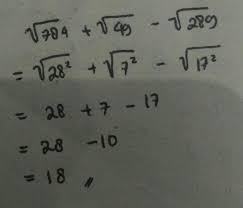 √784 + √49 - √289
= √28² + √7² - √17²
= 28 + 7 - 17
= 28 - 10
= 18 //